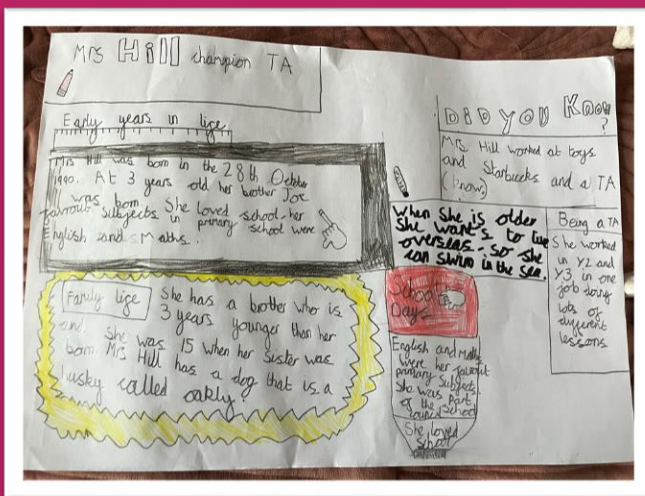 Mrs Hill champion TA
Early years in life
Mrs Hill was born in the 28th October
1990. At 3 years old her brother Joe
was born. She loved school. her
favrout subjects in primary school were
English and Maths.
Family life
She has a brother who is
3 years younger than her
and She was 15 when her sister was
born. Mrs Hill has a dog that is a
husky called oakly.
DID YOU KNOW
?
Mrs Hill worked at toys
and Starbucks and a TA
(know)
When She is older
She want's to live
overseas. So she
can swim in the sea.
Being a TA
She worked
in Y2 and
Y3 in one
job doing
lots of
different
lessons
School
Days
English and Maths
were her favrout
primary subjects.
She was part
of the School
council
She loved
School